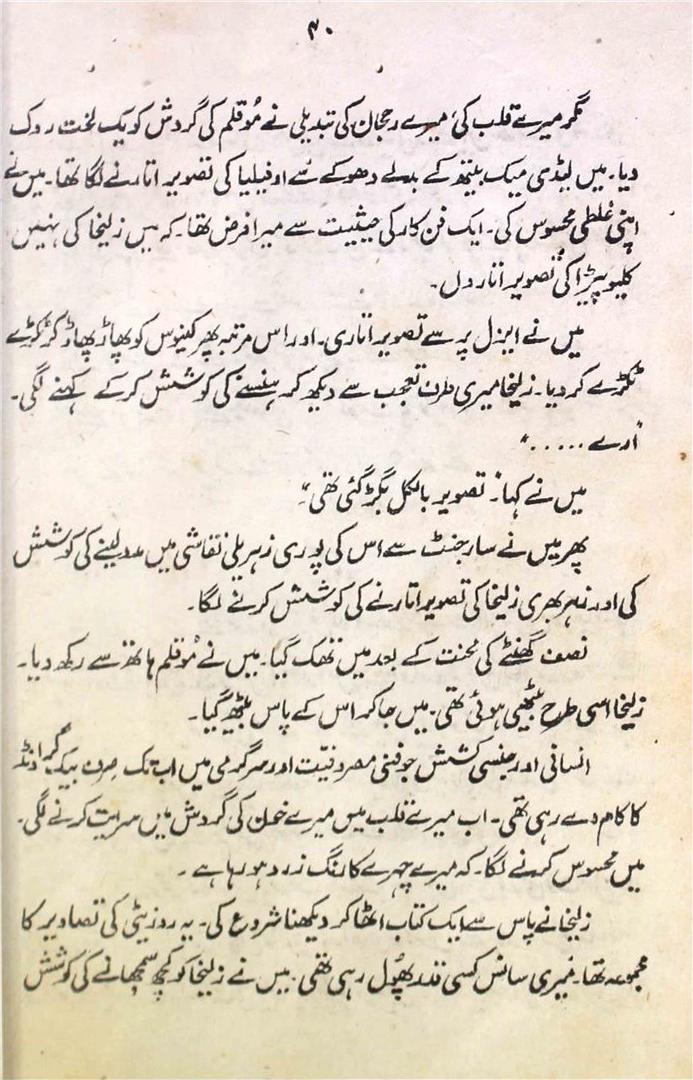 ۴۰
مگر میرے قلب کی، میرے رحجان کی تبدیلی نے مُوقلم کی گردش کو یک لخت روک
دیا۔ میں لیڈی میک بیتھ کے بدلے دھوکے سے اوفیلیا کی تصویر اتارنے لگا تھا۔ میں نے
اپنی غلطی محسوس کی۔ ایک فن کار کی حیثیت سے میرا فرض تھا۔ کہ میں زلیخا کی نہیں
کلیوپیڑا کی تصویر اتار دل۔
میں نے ایزل پر سے تصویر اتاری۔ اور اس مرتبہ پھر کینوس کو پھاڑ پھاڑ کر ٹکڑے
ٹکڑے کر دیا۔ زلیخا میری طرف تعجب سے دیکھ کر ہنسنے کی کوشش کرکے کہنے لگی۔
"ارے ....."
میں نے کہا۔ تصویر بالکل بگڑ گئی تھی"۔
پھر میں نے سارجنٹ سے اس کی پوری زہریلی نقاشی میں مدد لینے کی کوشش
کی اور زہر بھری زلیخا کی تصویر اتارنے کی کوشش کرنے لگا۔
نصف گھنٹے کی محنت کے بعد میں تھک گیا۔ میں نے مُوقلم ہاتھ سے رکھ دیا۔
زلیخا اسی طرح بیٹھی ہوئی تھی۔ میں جا کر اس کے پاس بیٹھ گیا۔
انسانی اور جنسی کشش جو فنی مصروفیّت اور سرگرمی میں اب تک صرف بیک گراؤنڈ
کا کام دے رہی تھی۔ اب میرے قلب میں میرے خون کی گردش میں سرایت کرنے لگی۔
میں محسوس کرنے لگا۔ کہ میرے چہرے کا رنگ زرد ہو رہا ہے۔
زلیخا نے پاس سے ایک کتاب اٹھا کر دیکھنا شروع کی۔ یہ روزیٹی کی تصاویر کا
مجموعہ تھا۔ میری سانس کسی قدر پھُول رہی تھی۔ میں نے زلیخا کو کچھ سمجھانے کی کوشش